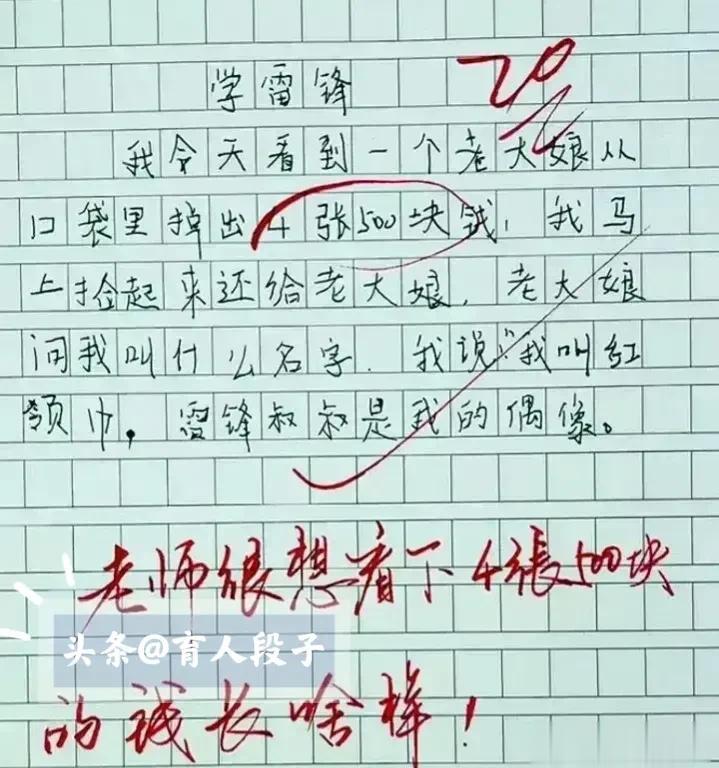 学雷锋
20
我今天看到一个老大娘从
口袋里掉出4张500块钱，我马
上捡起来还给老大娘，老大娘
问我叫什么名字.我说"我叫红
领巾，雷锋叔叔是我的偶像。
老师很想看下4張500块
头条@育人段子
的钱长啥样！